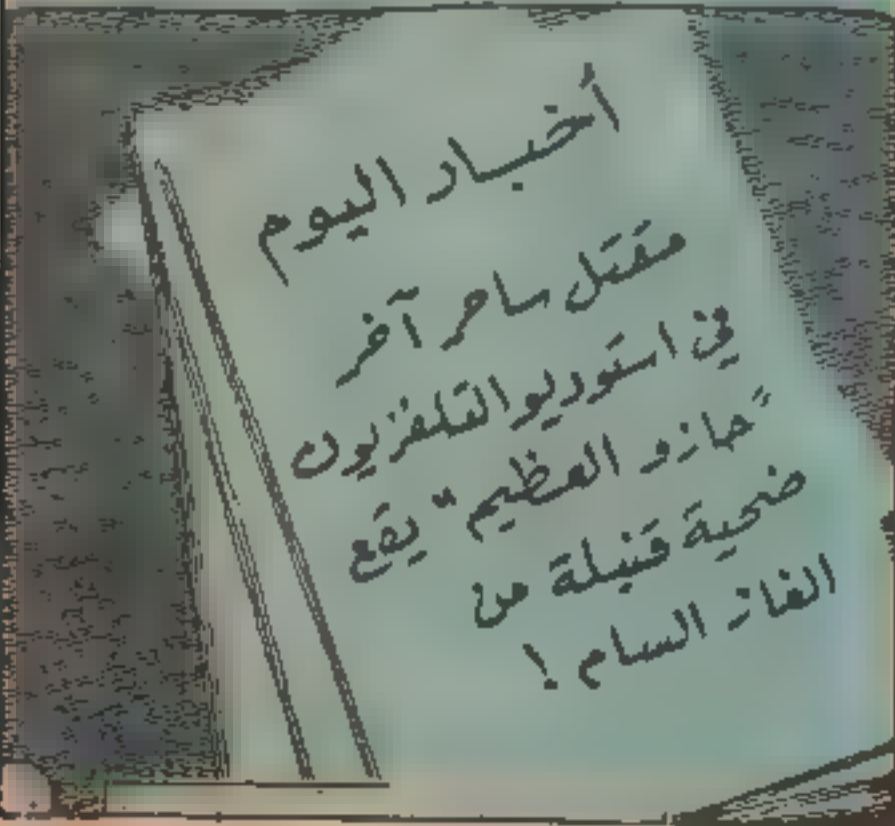 أخبار اليوم
مقتل ساحر آخر
في استوديو التلفزيون
"حازو العظيم" يقع
ضحية قنبلة من
الغاز السام !